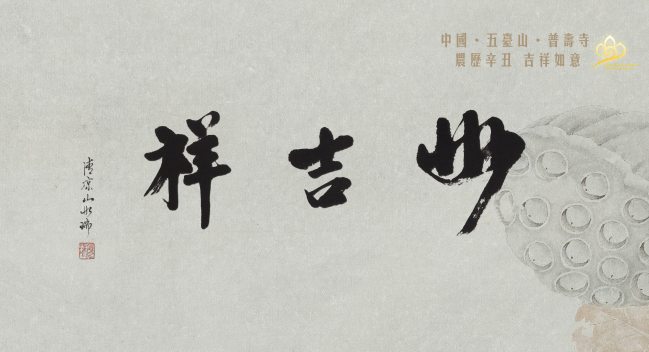 中國·五臺山·普壽寺
農歷辛丑 吉祥如意
妙吉祥
清涼山如瑞